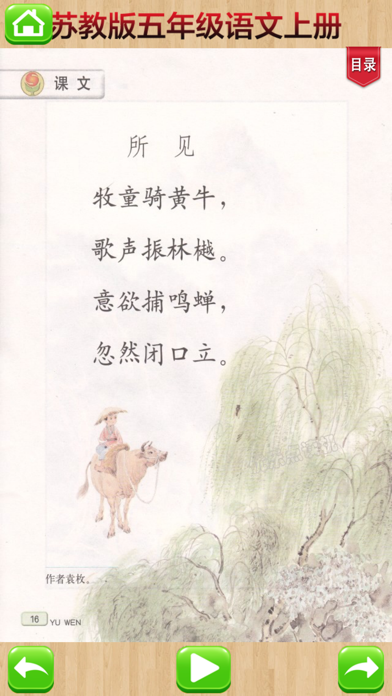 苏教版五年级语文上册
目录
课文
所 见
牧童骑黄牛，
歌声振林樾。
意欲捕鸣蝉，
忽然闭口立。
作者袁枚。
16 YU WEN